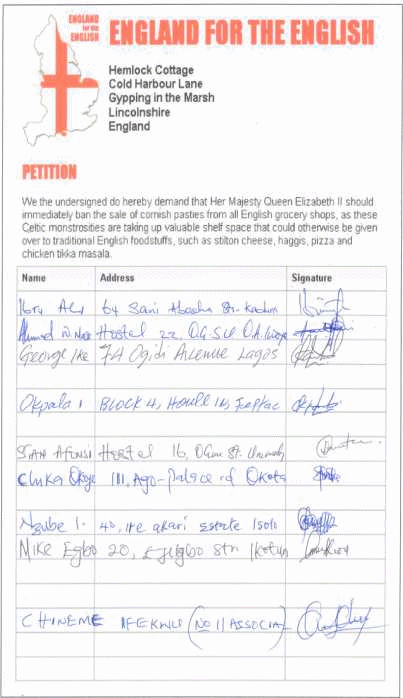 ENGLAND
for the
ENGLISH
ENGLAND FOR THE ENGLISH
Hemlock Cottage
Cold Harbour Lane
Gypping in the Marsh
Lincolnshire
England
PETITION
We the undersigned do hereby demand that Her Majesty Queen Elizabeth II should
immediately ban the sale of cornish pasties from all English grocery shops, as these
Celtic monstrosities are taking up valuable shelf space that could otherwise be given
over to traditional English foodstuffs, such as stilton cheese, haggis, pizza and
chicken tikka masala.
Name Address Signature
64 Sani Abacha Str.
Ahmed Hostel 22,
George Ike 7A Ogidi Avenue Lagos
Okpala I Block 4, House 14, Festac
Hostel 16, University
Chuka Okoye 111, Ago-Palace rd Okota
Ngube I. 40, Ire akari Estate Isolo
Mike Egbo 20, Ejigbo Str. Ikotun
CHINEME IFEKWU (NO 11 ASSOCIAT